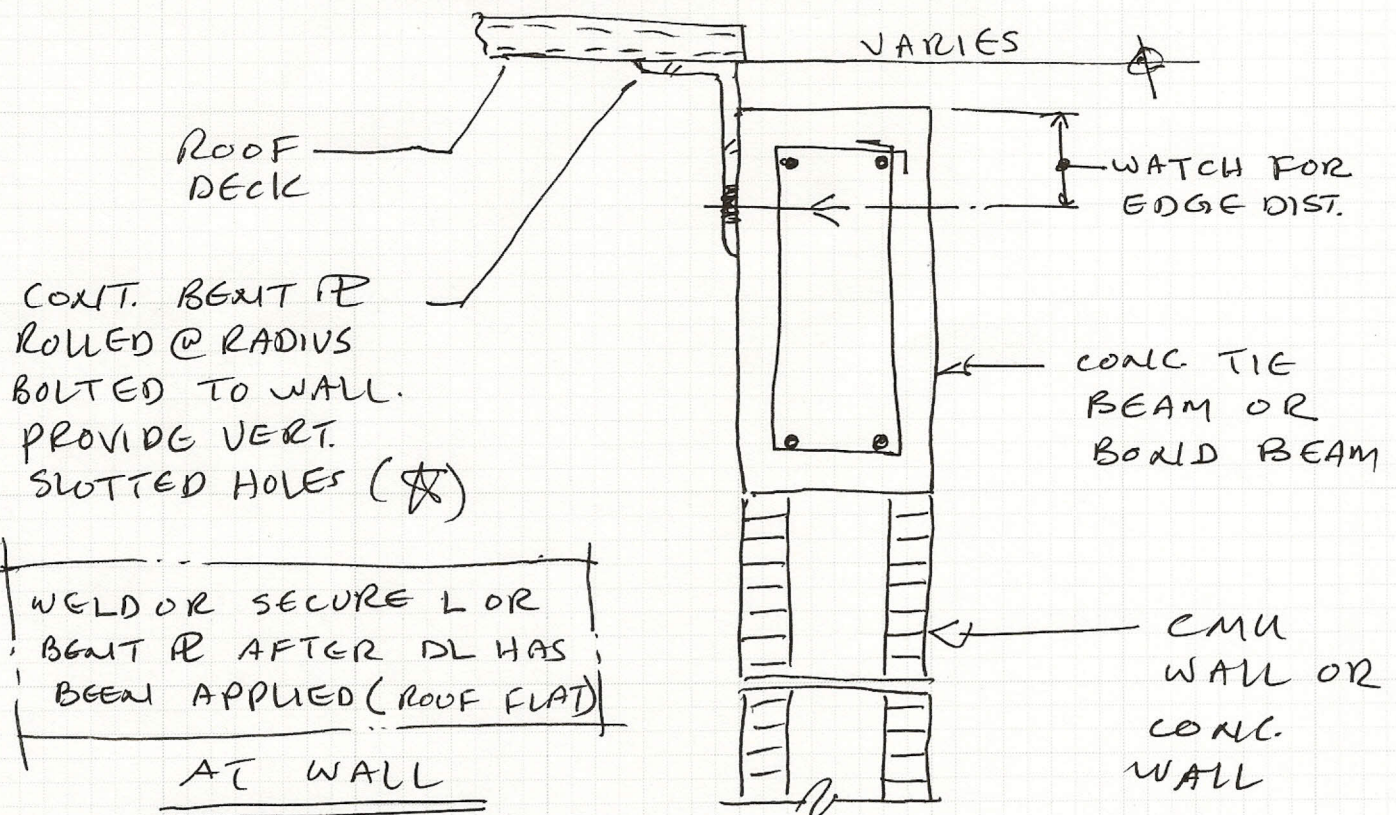 VARIES
ROOF
DECK
WATCH FOR
EDGE DIST.
CONT. BENT PL
ROLLED @ RADIUS
BOLTED TO WALL.
PROVIDE VERT.
SLOTTED HOLES (☆)
CONC. TIE
BEAM OR
BOND BEAM
WELD OR SECURE L OR
BENT PL AFTER DL HAS
BEEN APPLIED (ROOF FLAT)
CMU
WALL OR
CONC.
WALL
AT WALL